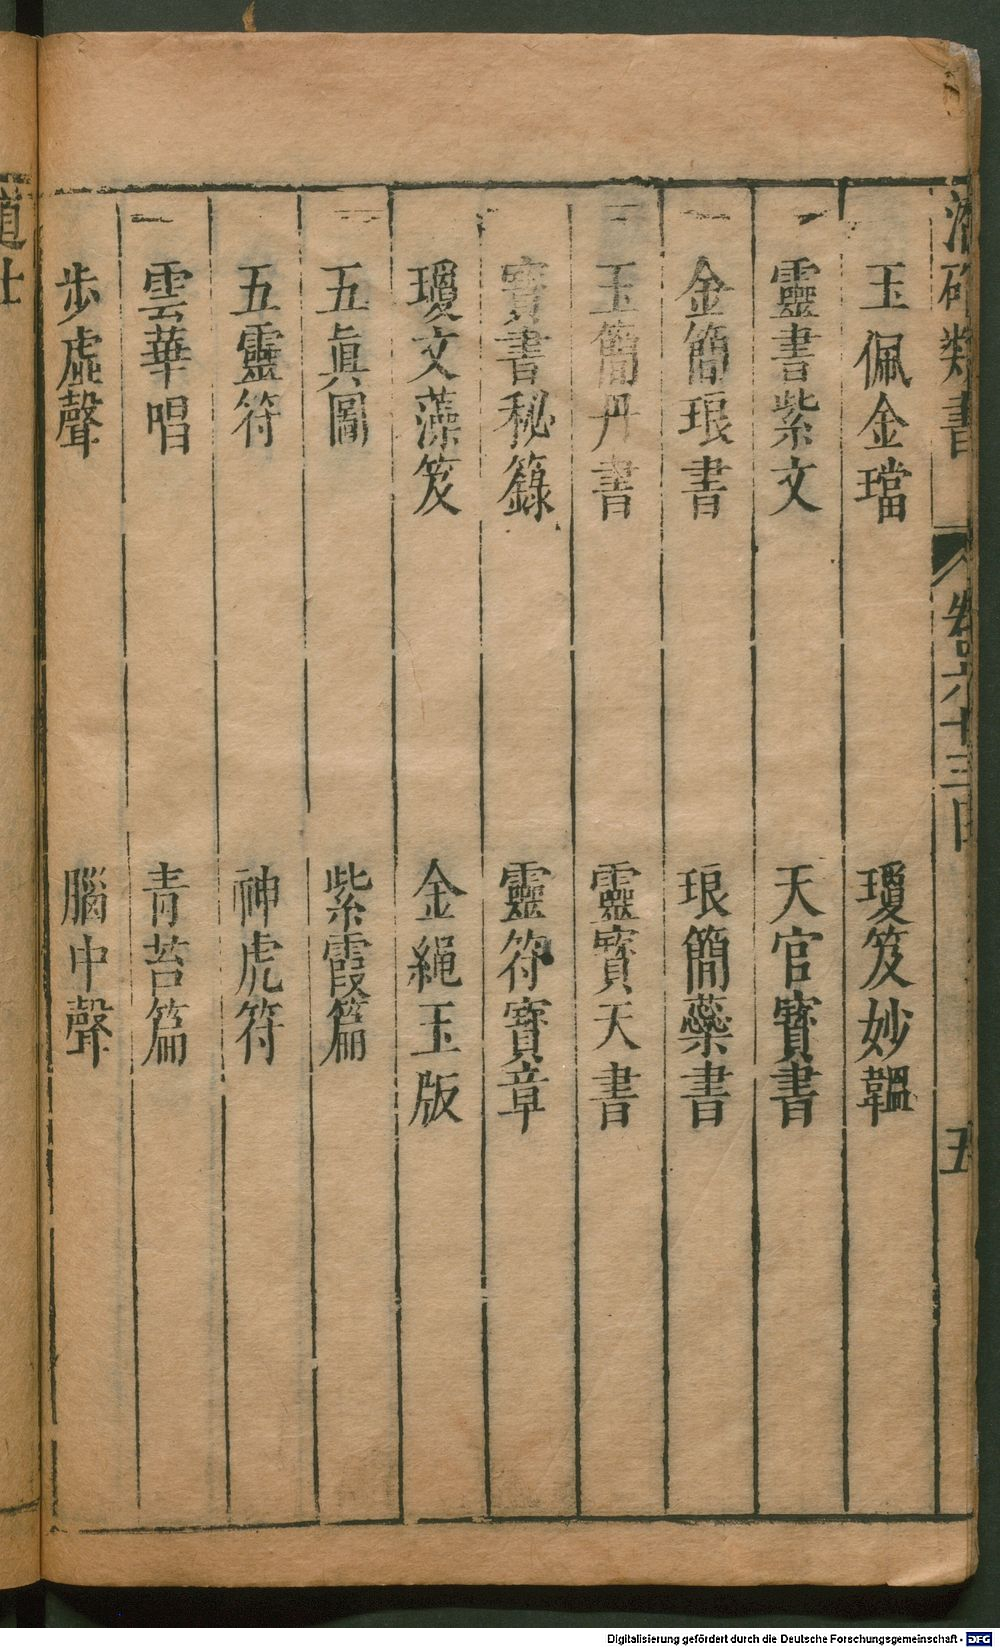 類書 卷六十三 五
玉佩金璫 瓊笈妙韞
靈書紫文 天官寶書
金簡琅書 琅簡蘂書
玉簡丹書 靈寳天書
寳書秘籙 靈符寳章
瓊文藻笈 金繩玉版
五眞圖 紫霞篇
五靈符 神虎符
雲華唱 青苔篇
步虛聲 腦中聲
道士
Digitalisierung gefördert durch die Deutsche Forschungsgemeinschaft - DFG